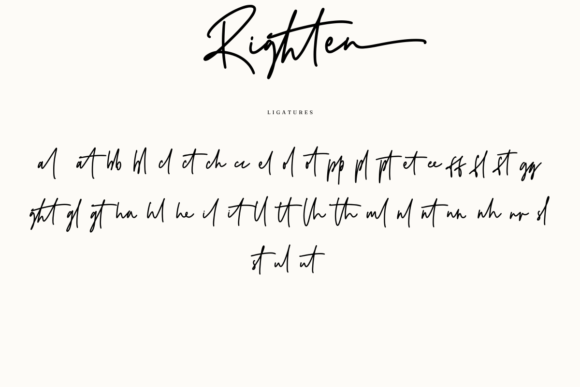 Righten
LIGATURES
al at bb bl cl ct ch cc el ol ot pp pl pt et ee ff fl ft gg
ght gl gt ha hl he il it ll tt lh th ml nl nt nn nh nr sl
st ul ut